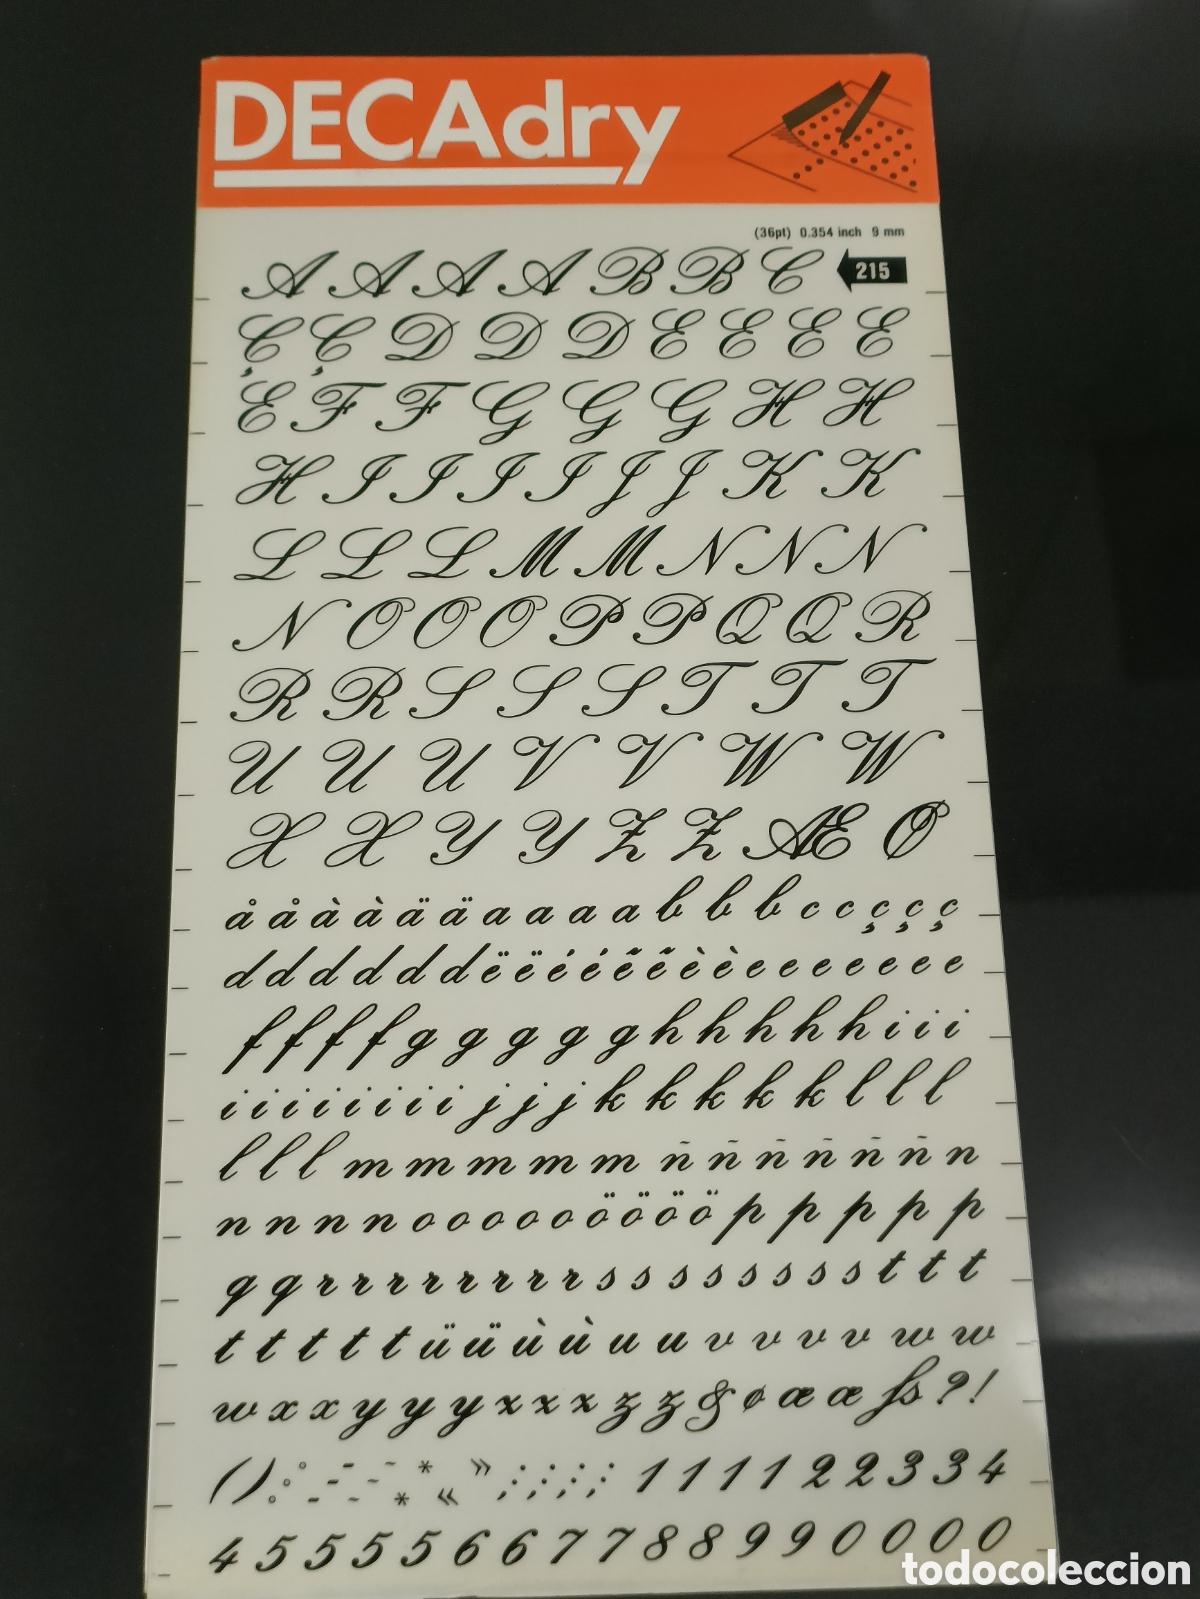 DECAdry
(36pt) 0.354 inch 9 mm
A A A A B B C 215
Ç Ç D D D E E E E
E F F G G G H H
H I I I I J J K K
L L L M M N N N
N O O O P P Q Q R
R R S S S T T T
U U U V V W W
X X Y Y Z Z Æ Ø
å å à à ä ä a a a a b b b c c ç ç ç
d d d d d d ë ë é é ê ê è è e e e e e e e
f f f f g g g g g h h h h h i i i
i i i i i i i i j j j k k k k k l l l
l l l m m m m m ñ ñ ñ ñ ñ ñ n
n n n n o o o o o ö ö ö ö p p p p p
q q r r r r r r r r s s s s s s s s t t t
t t t t t ü ü ù ù u u v v v v w w
w x x y y y z z z ʒ ʒ & ø æ æ ß ? !
( ) ° - - ~ * » ; ; ; ; 1 1 1 1 2 2 3 3 4
° - ~ * «
4 5 5 5 5 6 6 7 7 8 8 9 9 0 0 0 0
todocoleccion